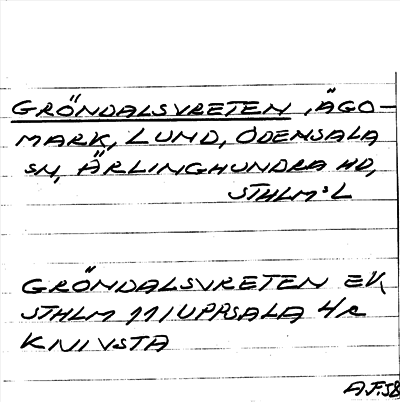 GRÖNDALSVRETEN, ÄGO-
MARK, LUND, ODENSALA
SN, ÄRLINGHUNDRA HD,
STHLM:S L
GRÖNDALSVRETEN EK,
STHLM 11 I UPPSALA 4R
KNIVSTA
A.F.58